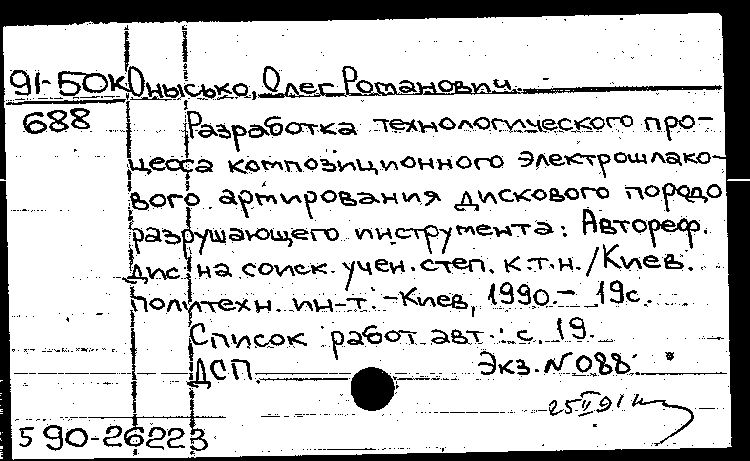 91-50к Онысько, Олег Романович
688 Разработка технологического про-
цесса композиционного электрошлако-
вого артирования дискового породо
разрушающего инструмента: Автореф.
дис. на соиск. учен. степ. к.т.н. / Киев.
политехн. ин-т. - Киев, 1990. - 19с.
Список работ авт.: с. 19.
ДСП. Экз. N 088.
25 II 91
5 90-26223